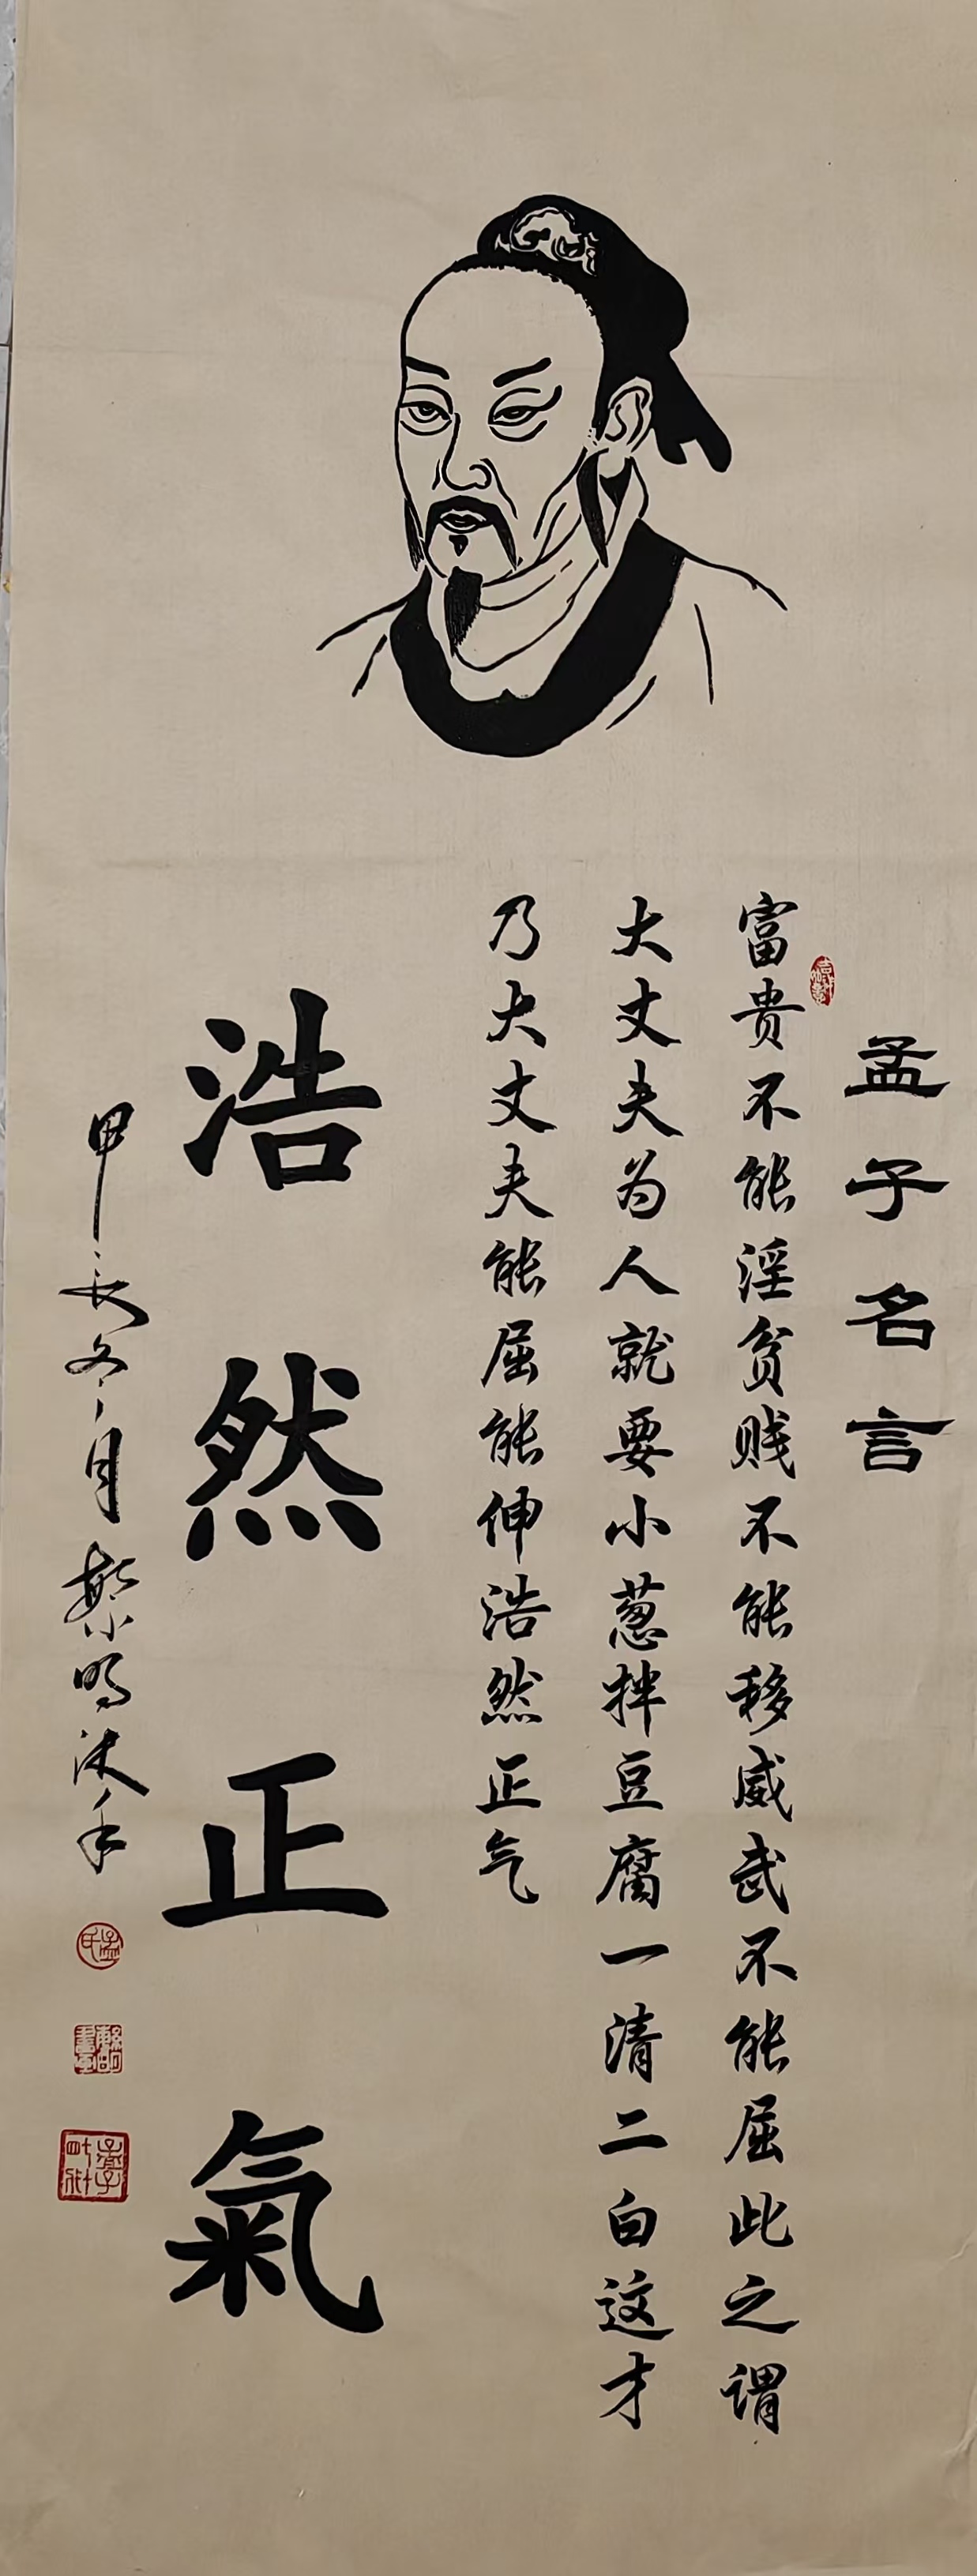 孟子名言
富贵不能淫贫贱不能移威武不能屈此之谓
大丈夫为人就要小葱拌豆腐一清二白这才
乃大丈夫能屈能伸浩然正气
浩然正氣
甲辰冬月繁鸣沐手
孟氏